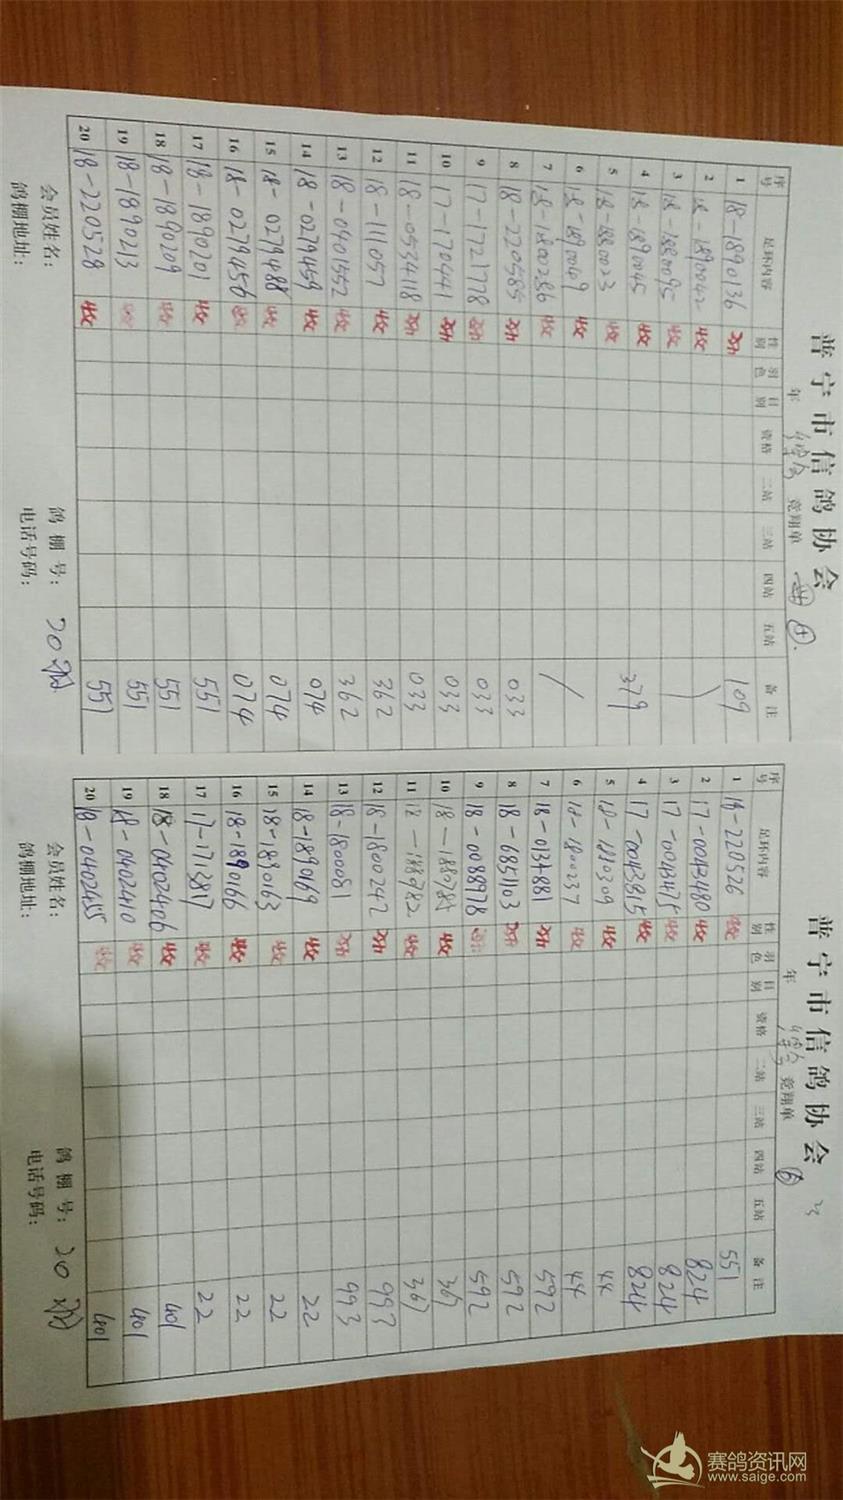 普宁市信鸽协会
年 竞翔单
序号 足环内容 性别 羽色 目别 资格 二站 三站 四站 五站 备注
1 18-1890136 雄 109
2 18-1890042 雌
3 18-1880095 雌
4 18-1890045 雌
5 18-1880023 雌 379
6 18-1890049 雌
7 18-1800286 雌
8 18-220585 雄 033
9 17-1721778 雄 033
10 17-170441 雄 033
11 18-0534118 雄 033
12 18-111057 雌 362
13 18-0401552 雌 362
14 18-0279459 雌 074
15 18-0279488 雌 074
16 18-0279456 雌 074
17 18-1890201 雌 551
18 18-1890209 雌 551
19 18-1890213 雌 551
20 18-220528 雌 551
会员姓名： 鸽棚号： 20羽
鸽棚地址： 电话号码：
普宁市信鸽协会 ⑥
年 竞翔单
序号 足环内容 性别 羽色 目别 资格 二站 三站 四站 五站 备注
1 18-220526 雌 551
2 17-0043480 雌 824
3 17-0043475 雌 824
4 17-0043815 雌 824
5 18-1880309 雌 44
6 18-1800237 雌 44
7 18-0134881 雄 592
8 18-6851103 雄 592
9 18-0088978 雄 592
10 18-188785 雌 367
11 18-188782 雌 367
12 18-1800242 雄 993
13 18-1800081 雄 993
14 18-1890169 雌 22
15 18-1890163 雌 22
16 18-1890166 雌 22
17 17-1713817 雌 22
18 18-0402406 雌 401
19 18-0402410 雌 401
20 18-0402455 雌 401
会员姓名： 鸽棚号： 20羽
鸽棚地址： 电话号码：
赛鸽资讯网
www.saige.com